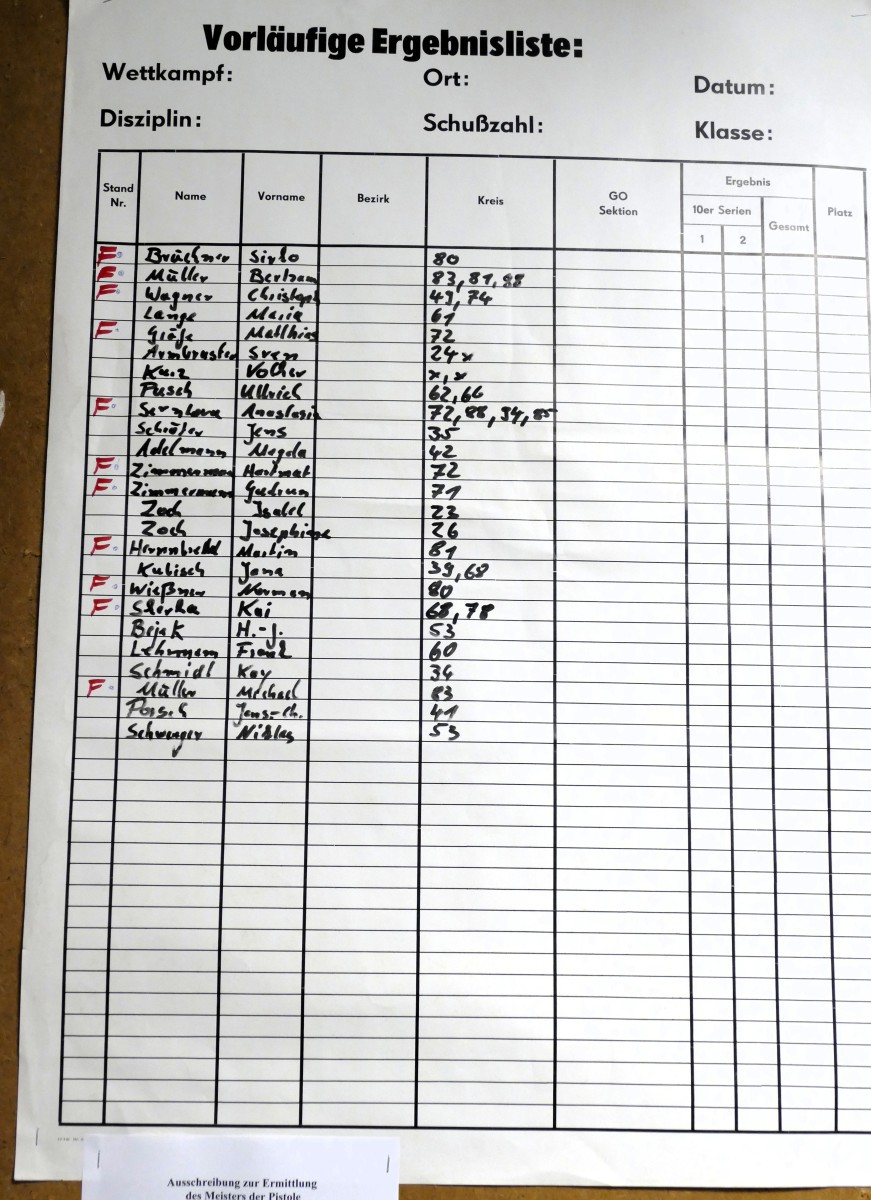 Vorläufige Ergebnisliste:
Wettkampf: Ort: Datum:
Disziplin: Schußzahl: Klasse:
Stand Nr. Name Vorname Bezirk Kreis GO Sektion Ergebnis Platz
10er Serien Gesamt
1 2
F. Brückner Sirko 80
F. Müller Bertram 83, 81, 88
F. Wagner Christoph 49, 74
Lange Maria 61
F. Gräfe Matthias 72
Armbruster Sven 24x
Kunz Volker x, x
Pusch Ullrich 62, 66
F. Anastasia 72, 88, 94, 85
Schäfer Jens 35
Adelmann Magda 42
F. Zimmermann Hartmut 72
F. Zimmermann Gudrun 71
Zoch Isabel 23
Zoch Josephine 26
F. Martin 81
Kubisch Jana 39, 68
F. Wießner Norman 80
F. Kai 68, 78
Bejek H.-J. 53
Lehmann Frank 60
Schmidt Kay 34
F. Müller Michael 83
Porsch Jens-Ch. 41
Schwuger Niklas 53
Ausschreibung zur Ermittlung
des Meisters der Pistole